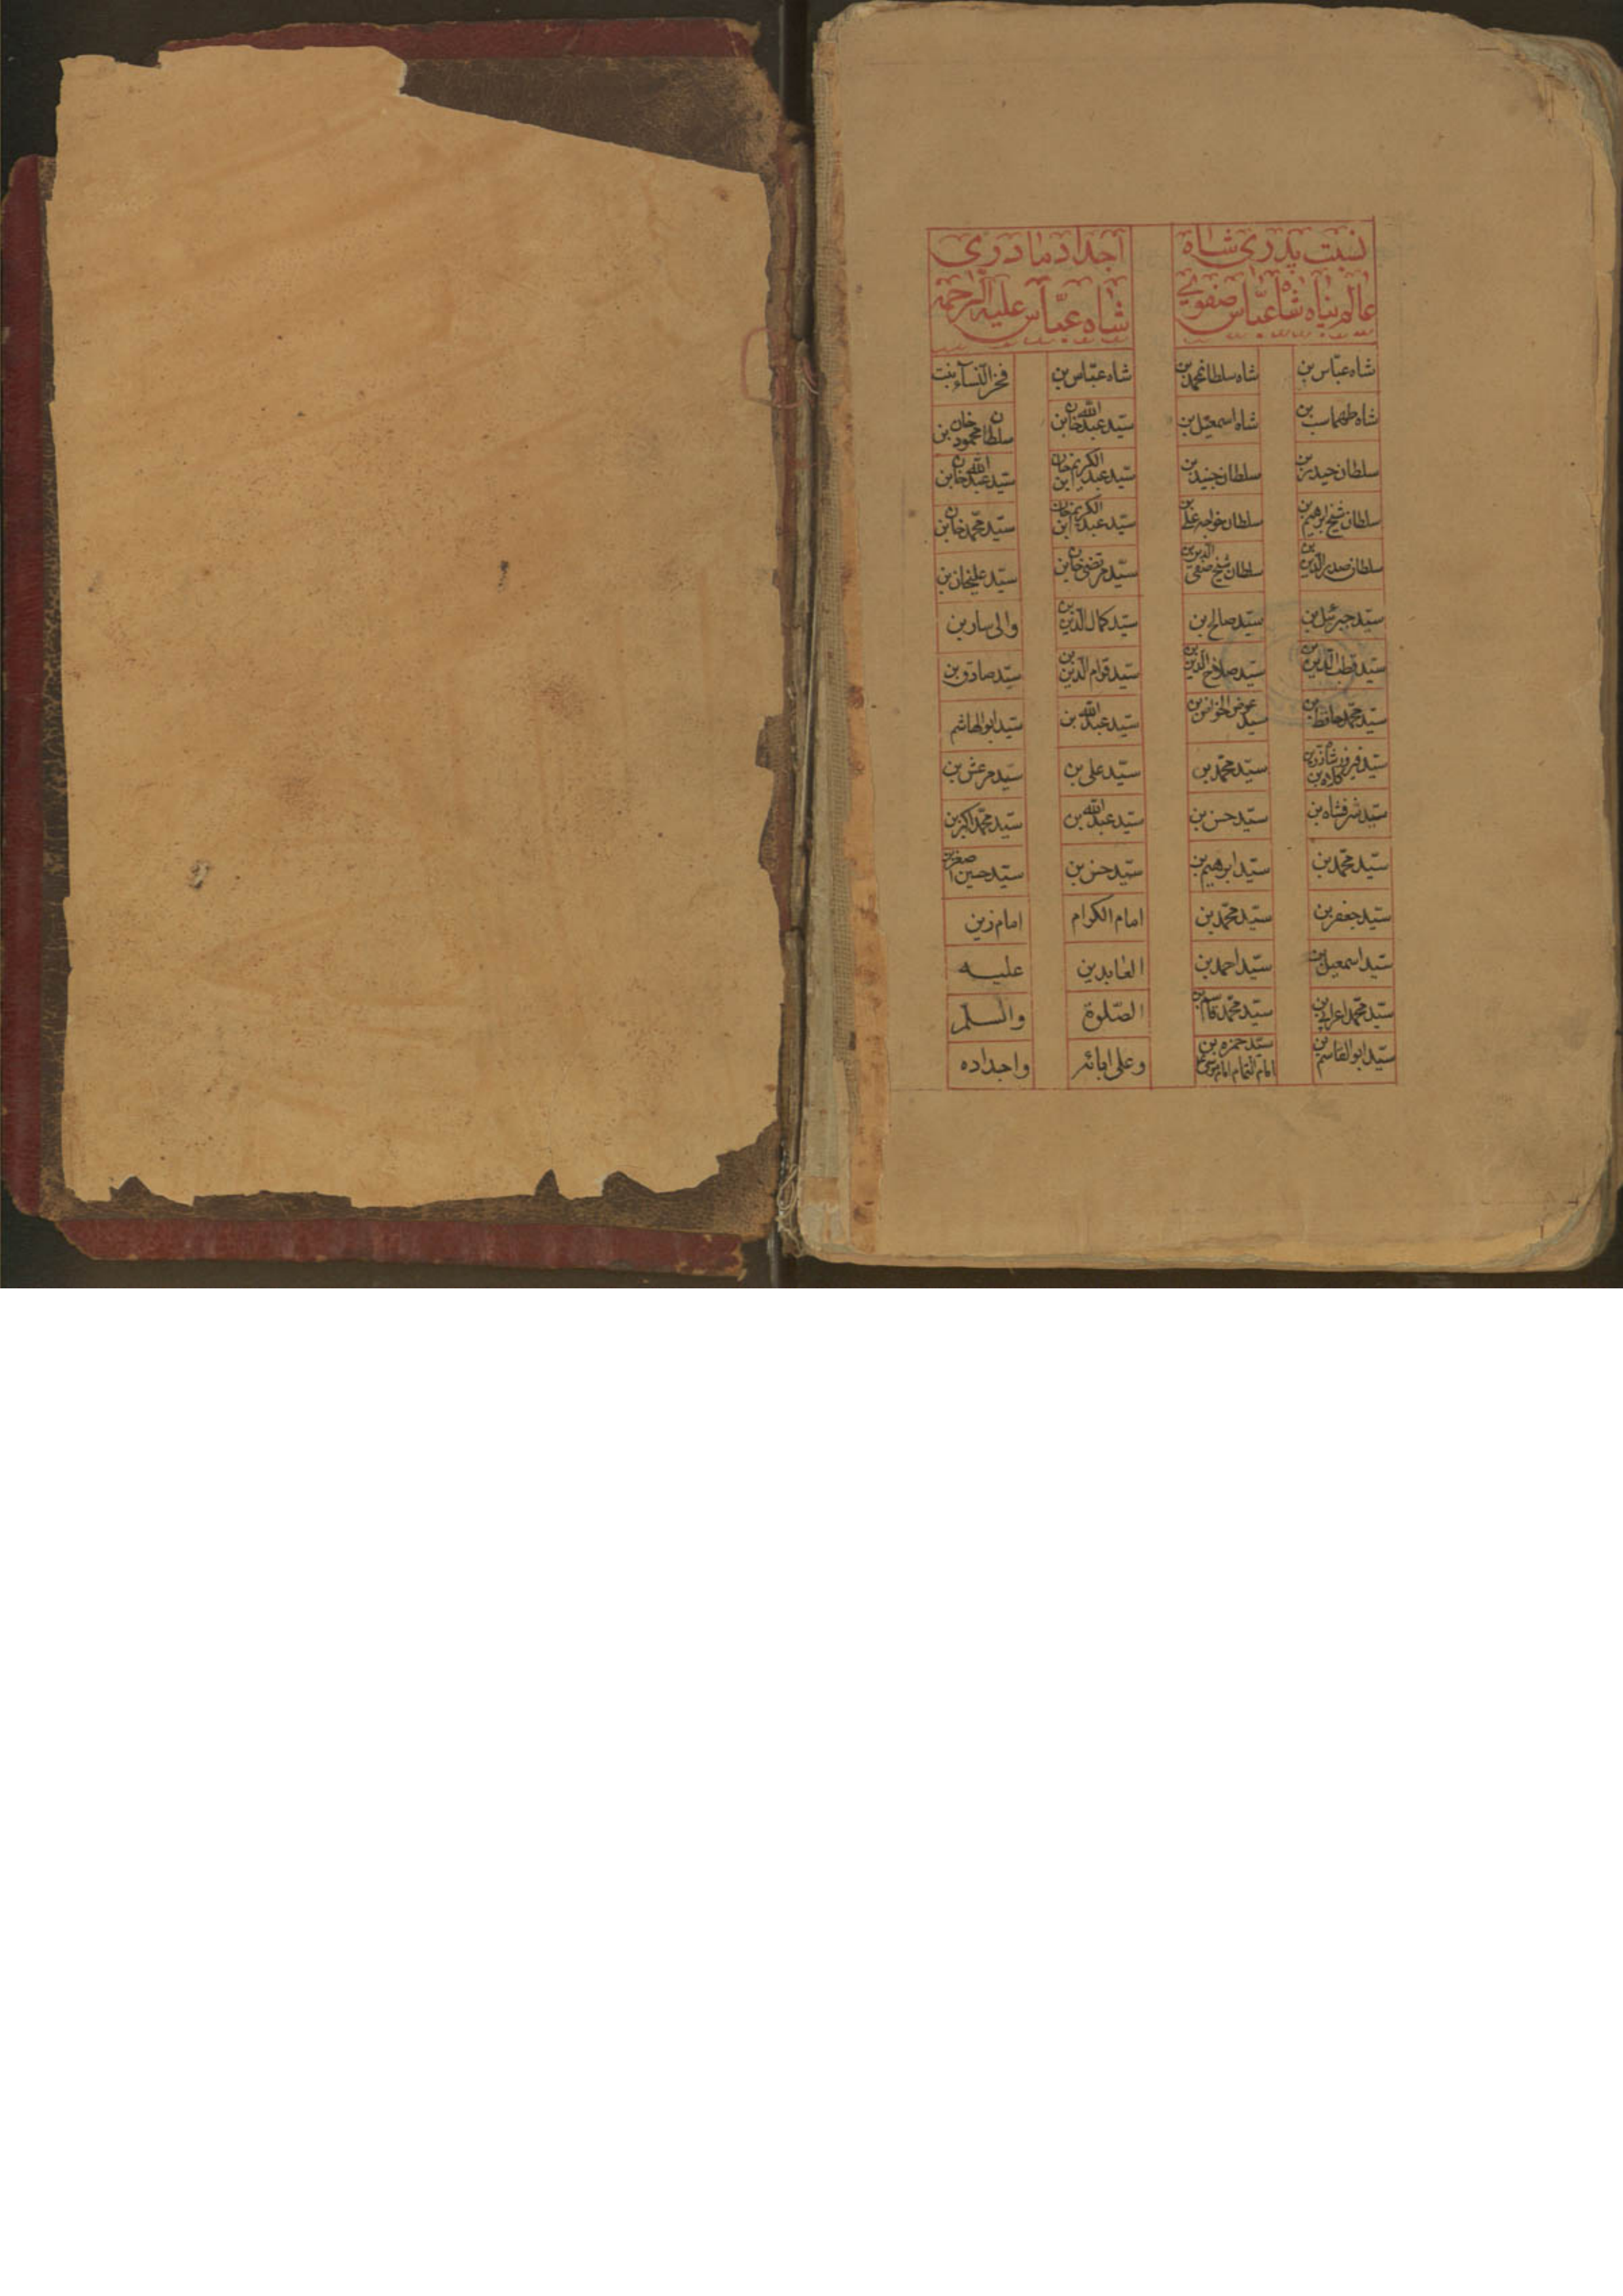 نسبت پدری شاه
عالم پناه شاه عباس صفوی
شاه عباس بن
شاه سلطانمحمد بن
شاه طهماسب بن
شاه اسمعیل بن
سلطان حیدر بن
سلطان جنید بن
سلطان شیخ ابرهیم بن
سلطان خواجه علی بن
سلطان صدر الدین بن
سلطان شیخ صفی الدین بن
سید جبرئیل بن
سید صالح بن
سید قطب الدین بن
سید صلاح الدین بن
سید محمد حافظ بن
سید عوض الخواص بن
سید فیروز شاه زرین کلاه بن
سید محمد بن
سید شرفشاه بن
سید حسن بن
سید محمد بن
سید ابرهیم بن
سید جعفر بن
سید محمد بن
سید اسمعیل بن
سید احمد بن
سید محمد اعرابی بن
سید محمد قاسم بن
سید ابو القاسم بن
سید حمزه بن
امام الهمام امام موسی
اجداد مادری
شاه عباس علیه الرحمه
شاه عباس بن
فخر النساء بنت
سید عبد الله خان بن
سلطان محمود خان بن
سید عبد الکریم خان بن
سید عبد الله خان بن
سید عبد الکریم خان بن
سید محمد خان بن
سید مرتضی خان بن
سید علیخان بن
سید کمال الدین بن
والی سار بن
سید قوام الدین بن
سید صادق بن
سید عبد الله بن
سید ابو الهاشم
سید علی بن
سید مرعش بن
سید عبد الله بن
سید محمد اکبر بن
سید حسن بن
سید حسین اصغر بن
امام الکرام
امام زین
العابدین
علیه
الصلوة
والسلم
وعلی ابائه
واجداده